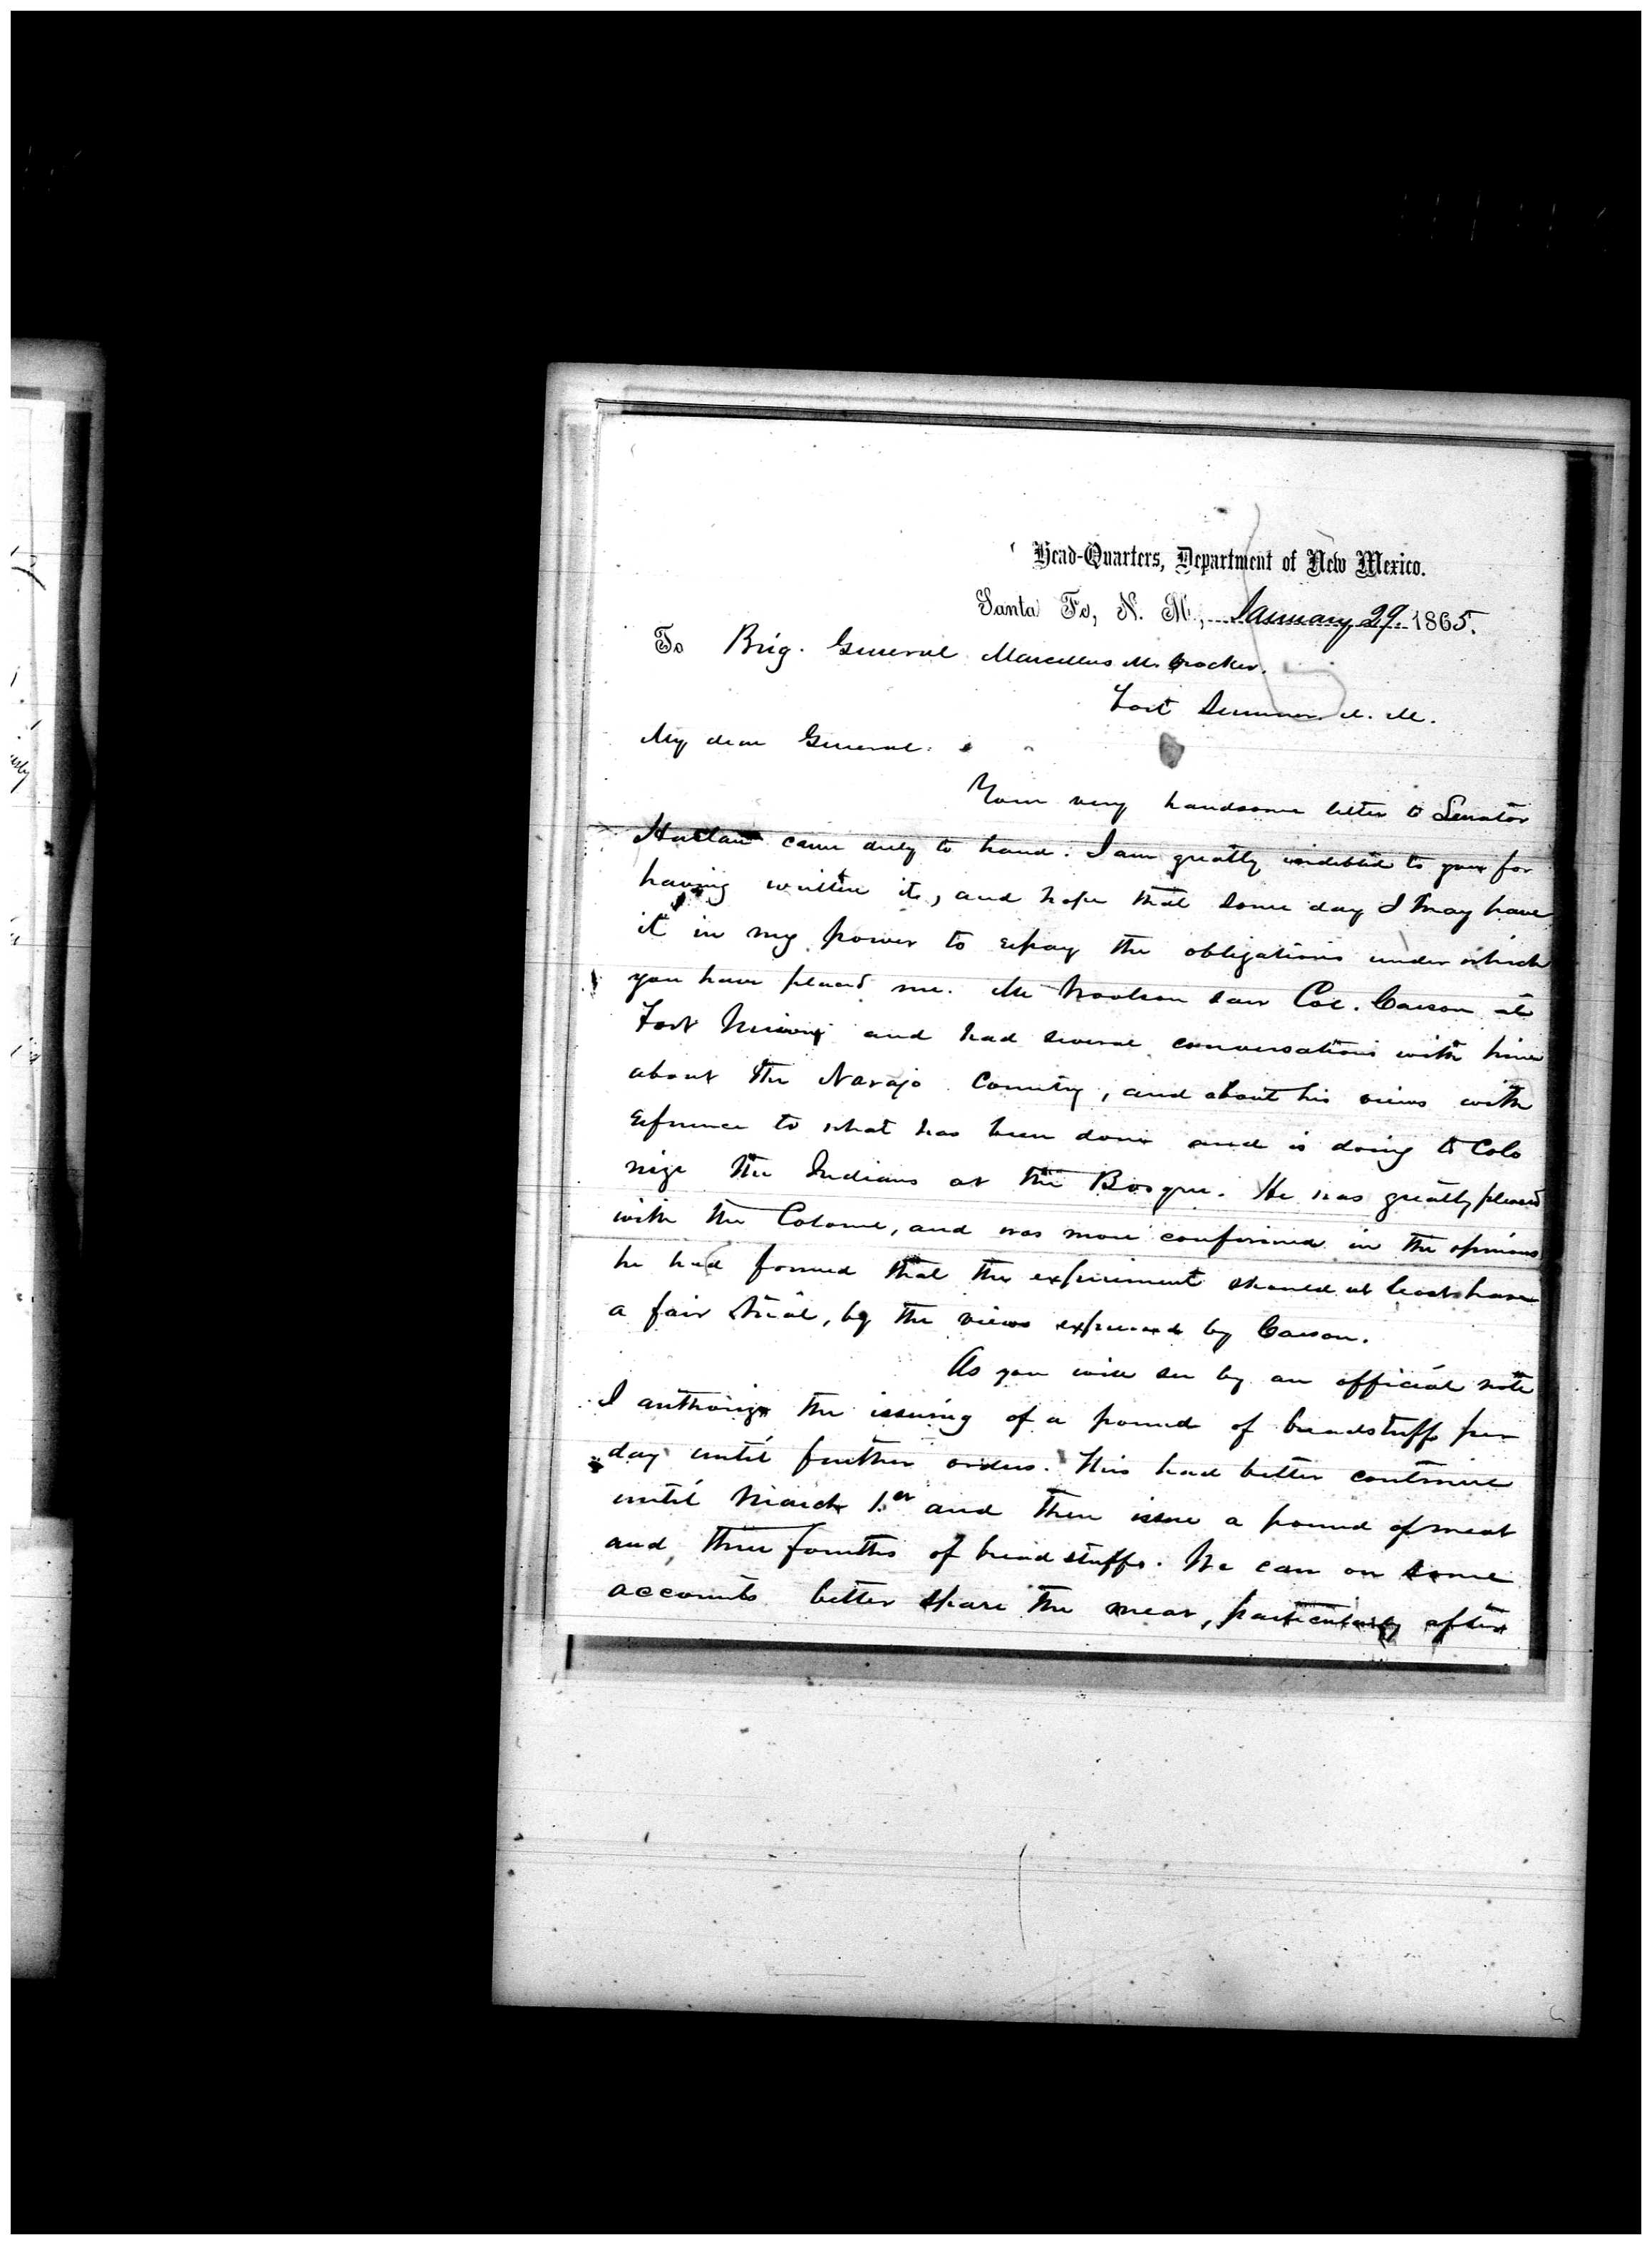 Head-Quarters, Department of New Mexico.
Santa Fe, N. M., January 29. 1865.
To Brig. General Marcellus M. Crocker.
Fort Sumner. N. M.
My dear General:
Your very handsome letter to Senator
Harlan came duly to hand. I am greatly indebted to you for
having written it, and hope that some day I may have
it in my power to repay the obligations under which
you have placed me. Mr Woolson saw Col. Carson at
Fort Union and had several conversations with him
about the Navajo Country, and about his views with
reference to what has been done and is doing to Colo
nize the Indians at the Bosque. He was greatly pleased
with the Colonel, and was more confirmed in the opinions
he had formed that the experiment should at least have
a fair trial, by the views expressed by Carson.
As you will see by an official note
I authorize the issuing of a pound of breadstuffs per
day until further orders. This had better continue
until March 1st and then issue a pound of meat
and three fourths of breadstuffs. We can on some
accounts better spare the meat, particularly after